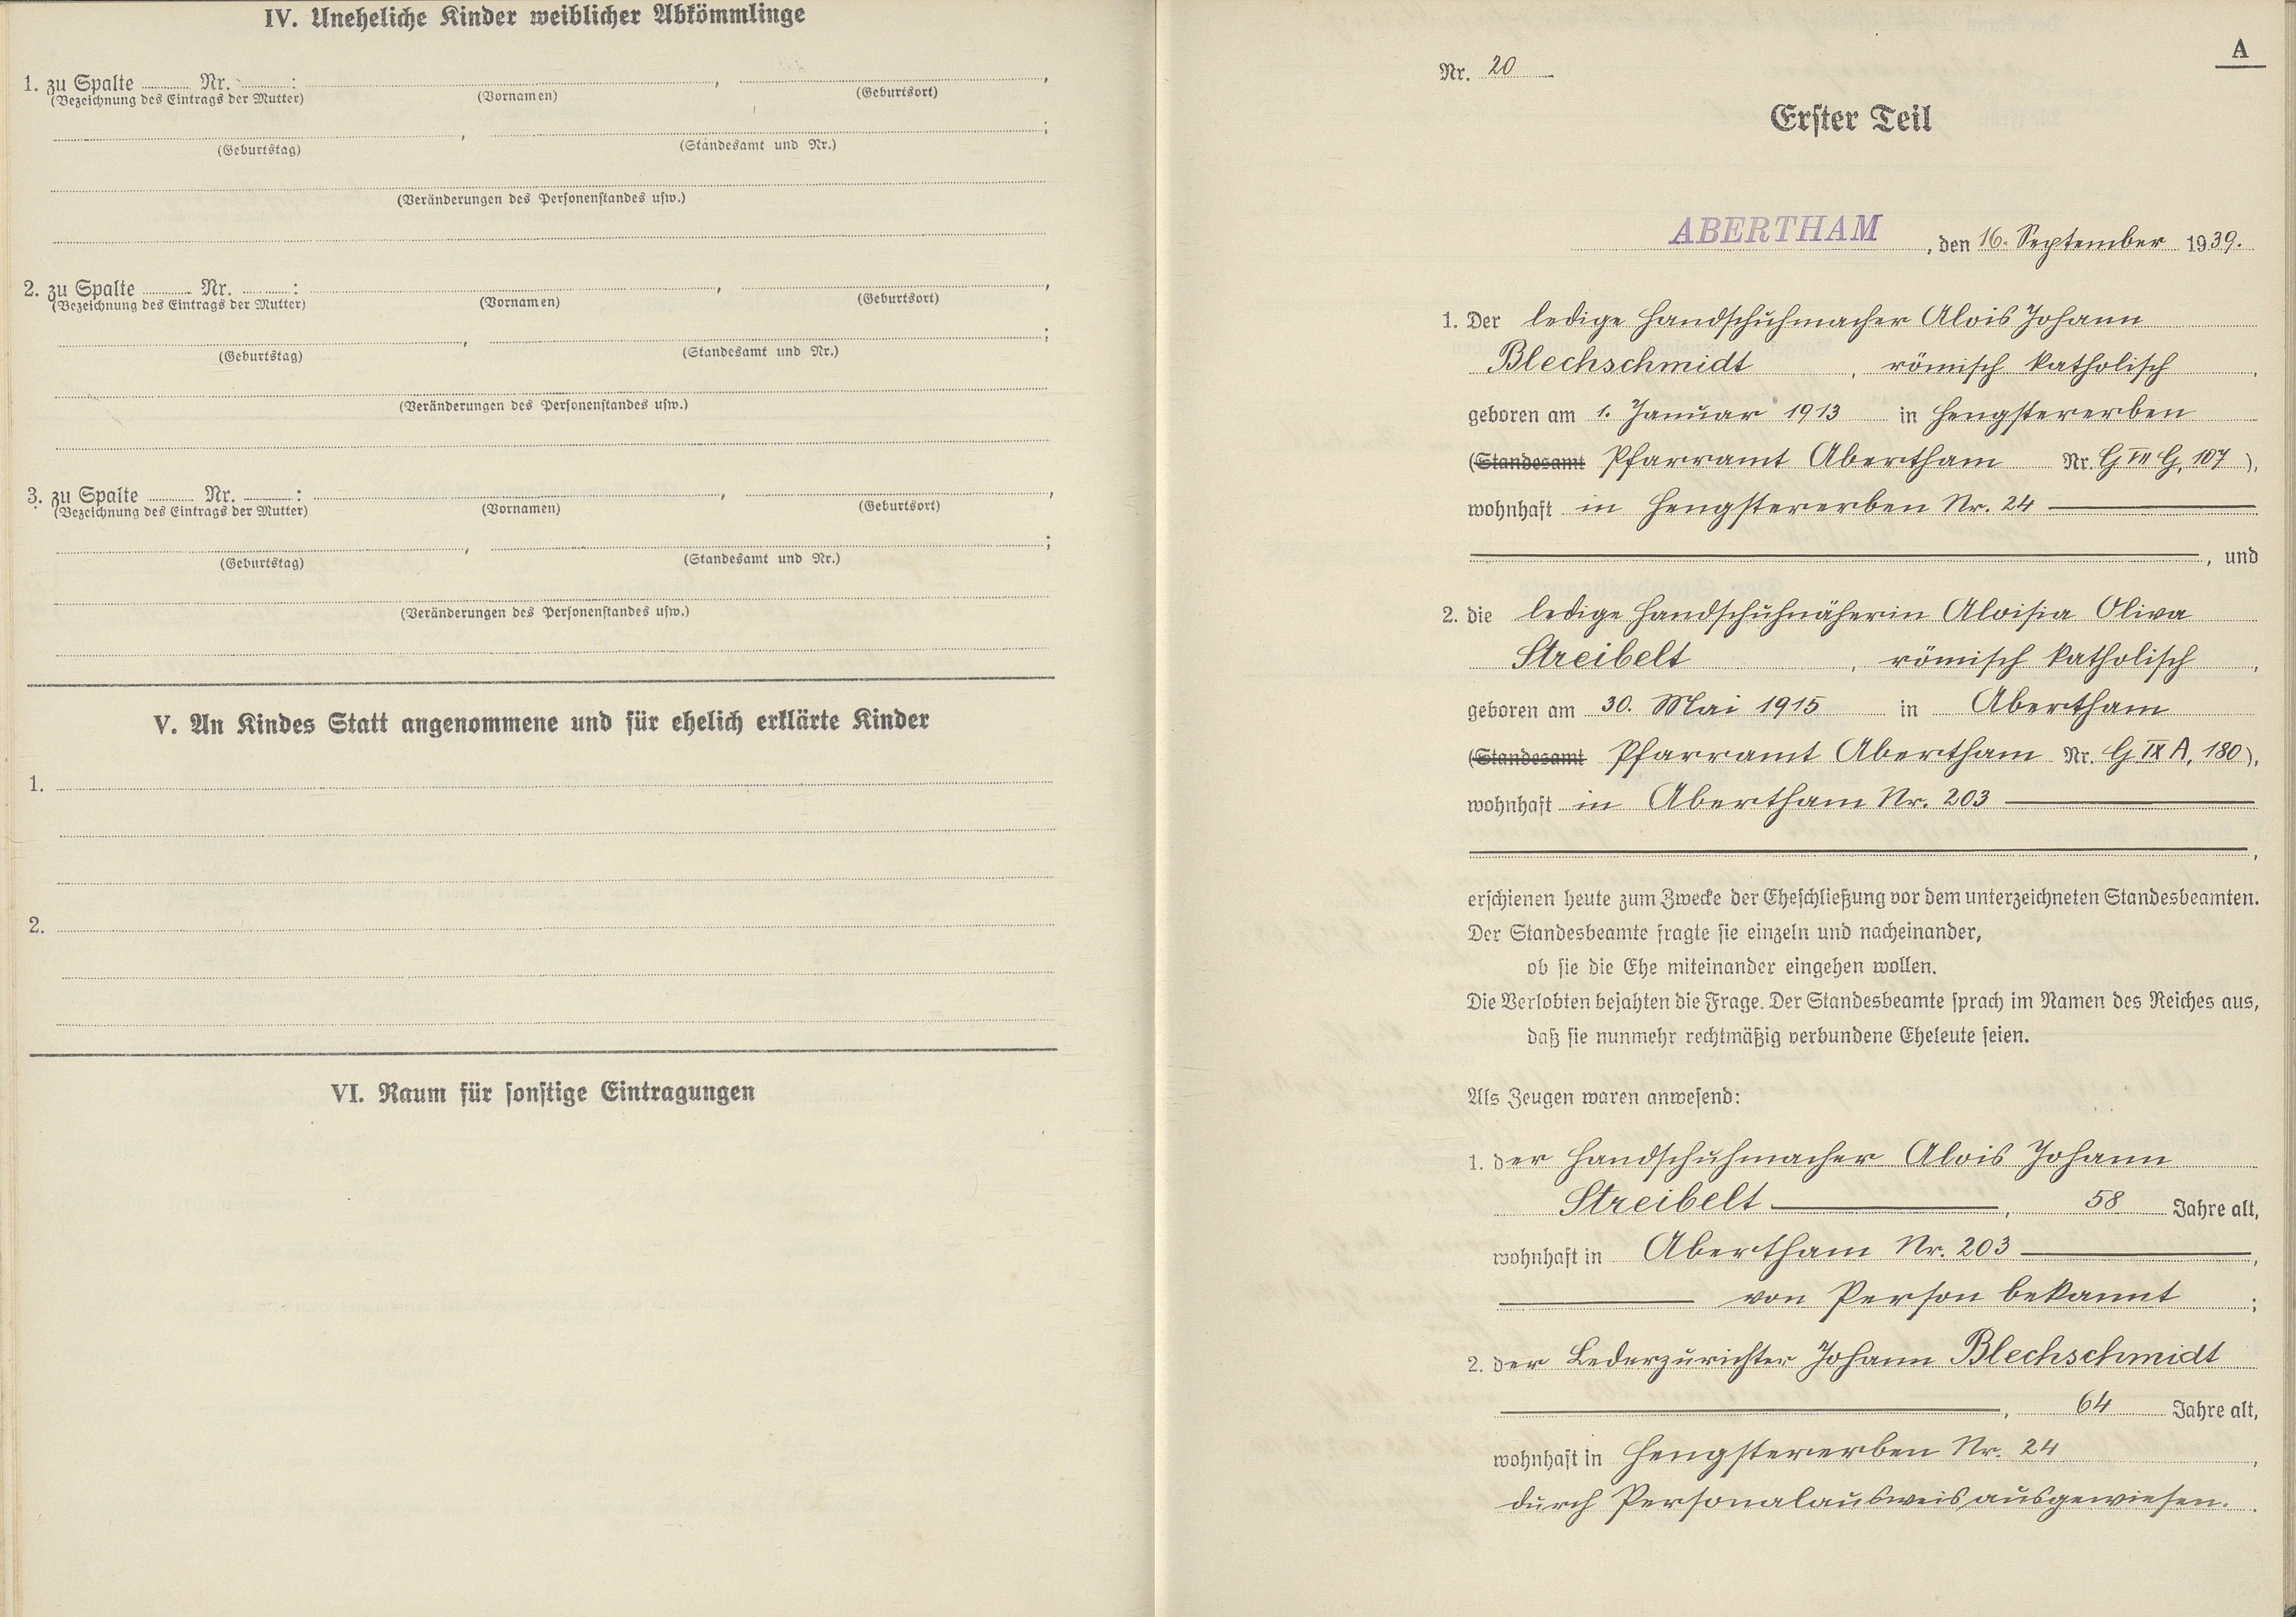 IV. Uneheliche Kinder weiblicher Abkömmlinge
1. zu Spalte ........ Nr. ........ : ........ , ........ ,
(Bezeichnung des Eintrags der Mutter) (Vornamen) (Geburtsort)
........ , ........ ;
(Geburtstag) (Standesamt und Nr.)
(Veränderungen des Personenstandes usw.)
2. zu Spalte ........ Nr. ........ : ........ , ........ ,
(Bezeichnung des Eintrags der Mutter) (Vornamen) (Geburtsort)
........ , ........ ;
(Geburtstag) (Standesamt und Nr.)
(Veränderungen des Personenstandes usw.)
3. zu Spalte ........ Nr. ........ : ........ , ........ ,
(Bezeichnung des Eintrags der Mutter) (Vornamen) (Geburtsort)
........ , ........ ;
(Geburtstag) (Standesamt und Nr.)
(Veränderungen des Personenstandes usw.)
V. An Kindes Statt angenommene und für ehelich erklärte Kinder
1.
2.
VI. Raum für sonstige Eintragungen
A
Nr. 20
Erster Teil
ABERTHAM , den 16. September 1939.
1. Der ledige Handschuhmacher Alois Johann
Blechschmidt , römisch katholisch ,
geboren am 1. Januar 1913 in Hengstererben
(Standesamt Pfarramt Abertham Nr. G VII G, 107 ),
wohnhaft in Hengstererben Nr. 24
, und
2. die ledige Handschuhnäherin Aloisia Oliva
Streibelt , römisch katholisch ,
geboren am 30. Mai 1915 in Abertham
(Standesamt Pfarramt Abertham Nr. G IX A, 180 ),
wohnhaft in Abertham Nr. 203
,
erschienen heute zum Zwecke der Eheschließung vor dem unterzeichneten Standesbeamten.
Der Standesbeamte fragte sie einzeln und nacheinander,
ob sie die Ehe miteinander eingehen wollen.
Die Verlobten bejahten die Frage. Der Standesbeamte sprach im Namen des Reiches aus,
daß sie nunmehr rechtmäßig verbundene Eheleute seien.
Als Zeugen waren anwesend:
1. der Handschuhmacher Alois Johann
Streibelt , 58 Jahre alt,
wohnhaft in Abertham Nr. 203 ,
von Person bekannt ;
2. der Lederzurichter Johann Blechschmidt
, 64 Jahre alt,
wohnhaft in Hengstererben Nr. 24 ,
durch Personalausweis ausgewiesen. .